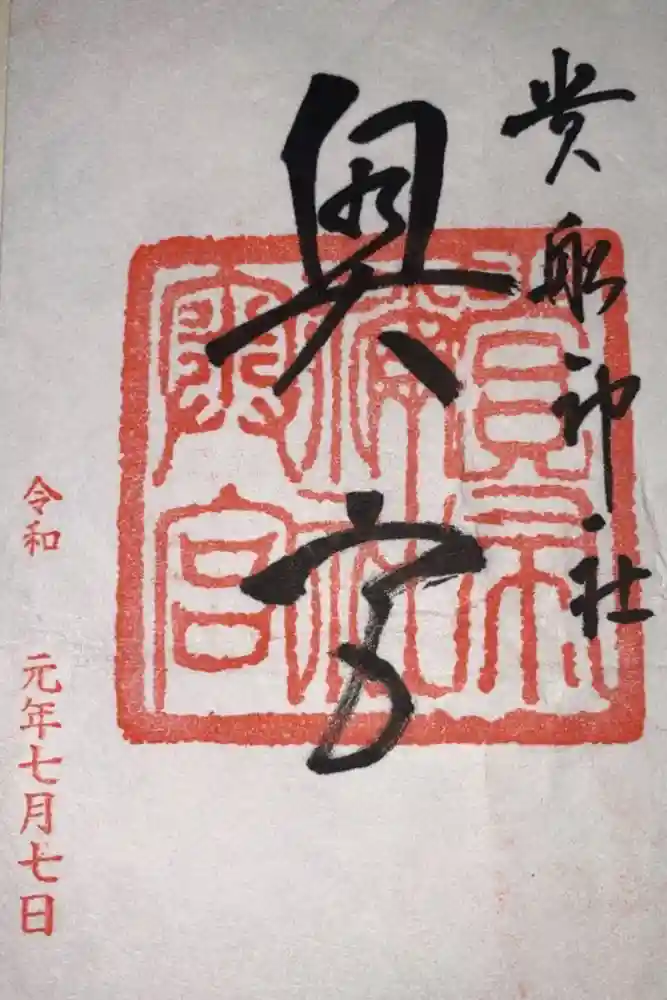 貴船神社
奥宮
奥宮
令和 元年七月七日